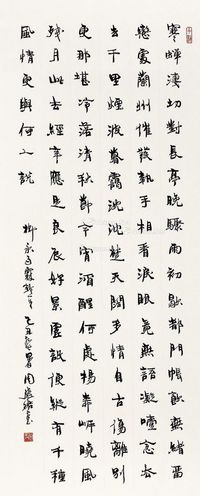 寒蟬淒切對長亭晚驟雨初歇都門帳飲無緒留
戀處蘭舟催發執手相看淚眼竟無語凝噎念去
去千里煙波暮靄沈沈楚天闊多情自古傷離別
更那堪冷落清秋節今宵酒醒何處楊柳岸曉風
殘月此去經年應是良辰好景虛設便縱有千種
風情更與何人說
柳永雨霖鈴 乙丑 周慧珺書